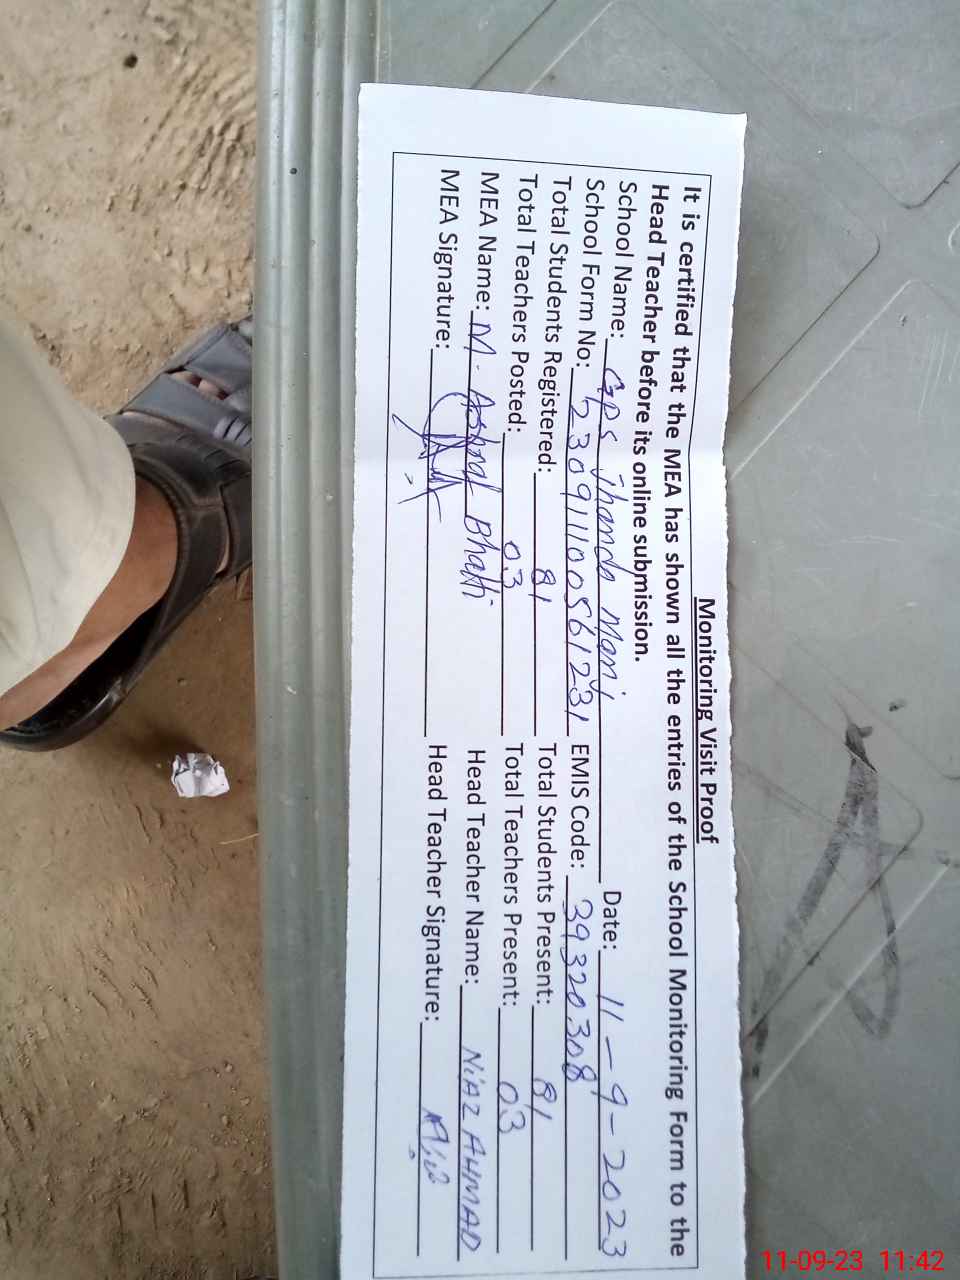 Monitoring Visit Proof
It is certified that the MEA has shown all the entries of the School Monitoring Form to the
Head Teacher before its online submission.
School Name: GPS Jhanda Mani Date: 11-9-2023
School Form No: 23091100561231 EMIS Code: 39320308
Total Students Registered: 81 Total Students Present: 81
Total Teachers Posted: 03 Total Teachers Present: 03
MEA Name: M. Ashraf Bhatti Head Teacher Name: NIAZ AHMAD
MEA Signature: Head Teacher Signature:
11-09-23 11:42